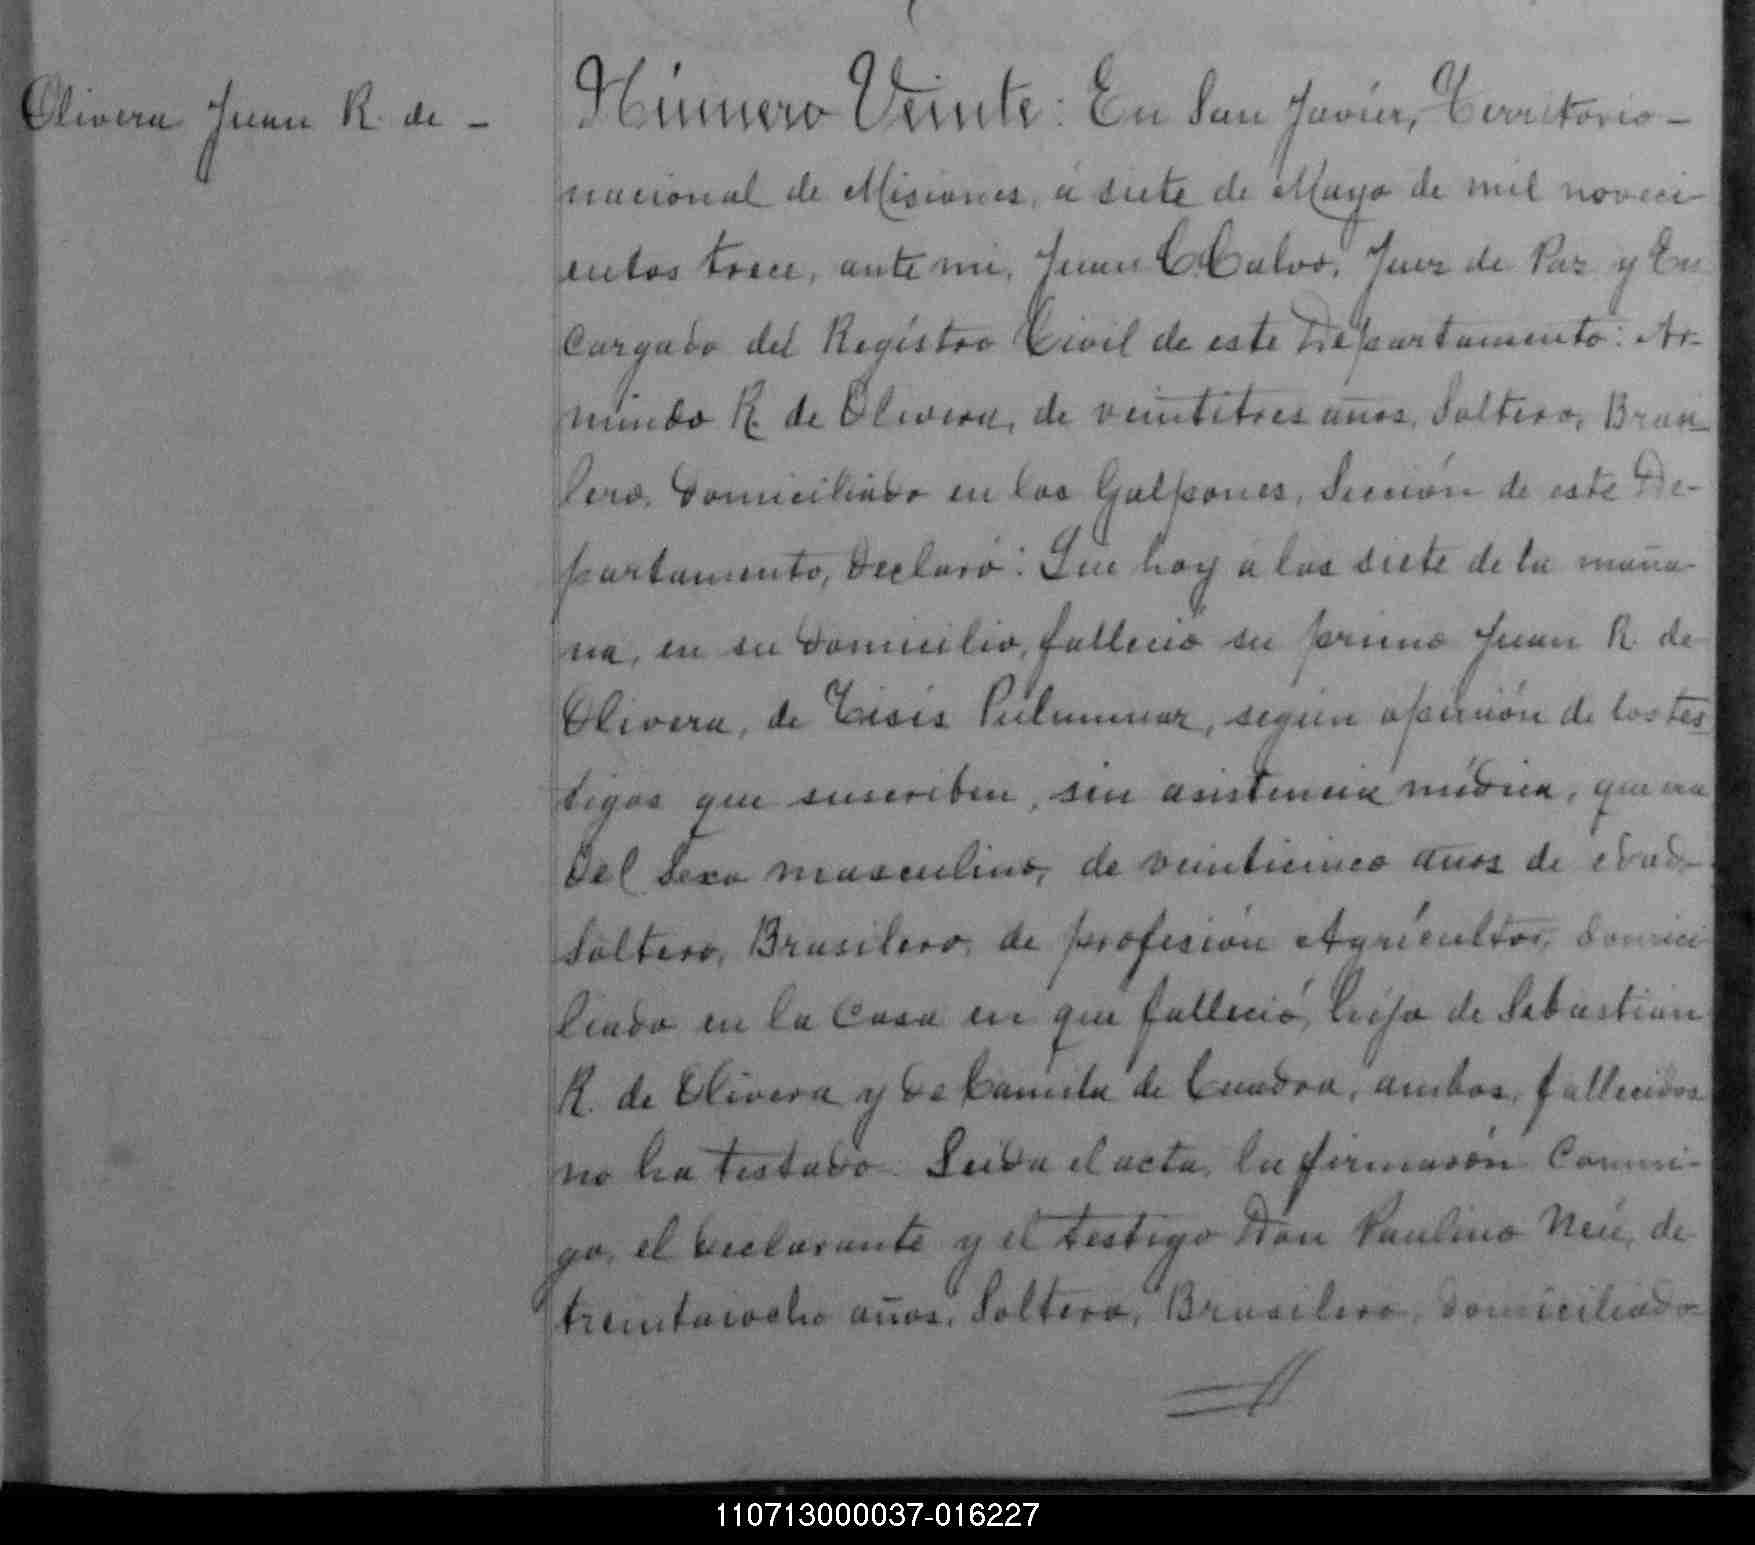 Olivera Juan R. de -
Número Veinte: En San Javier, Territorio -
nacional de Misiones, á siete de Mayo de mil noveci-
entos trece, ante mi, Juan C. Calvo, Juez de Paz y En
cargado del Registro Civil de este Departamento: Ar-
mindo R. de Olivera, de veintitres años, Soltero, Brasi
lero, domiciliado en los Galpones, Sección de este De-
partamento, declaró: Que hoy á las siete de la maña-
na, en su domicilio, falleció su primo Juan R. de
Olivera, de Tisis Pulmunar, según opinión de los tes
tigos que suscriben, sin asistencia médica, que era
del sexo masculino, de veinticinco años de edad-
Soltero, Brasilero, de profesión Agricultor, domici
liado en la casa en que falleció, hijo de Sebastián
R. de Olivera y de Camila de Cuadra, ambos, fallecidos
no ha testado. Leida el acta, la firmarón conmi-
go, el declarante y el testigo Don Paulino Neú, de
treintaiocho años, Soltero, Brasilero, domiciliado
110713000037-016227